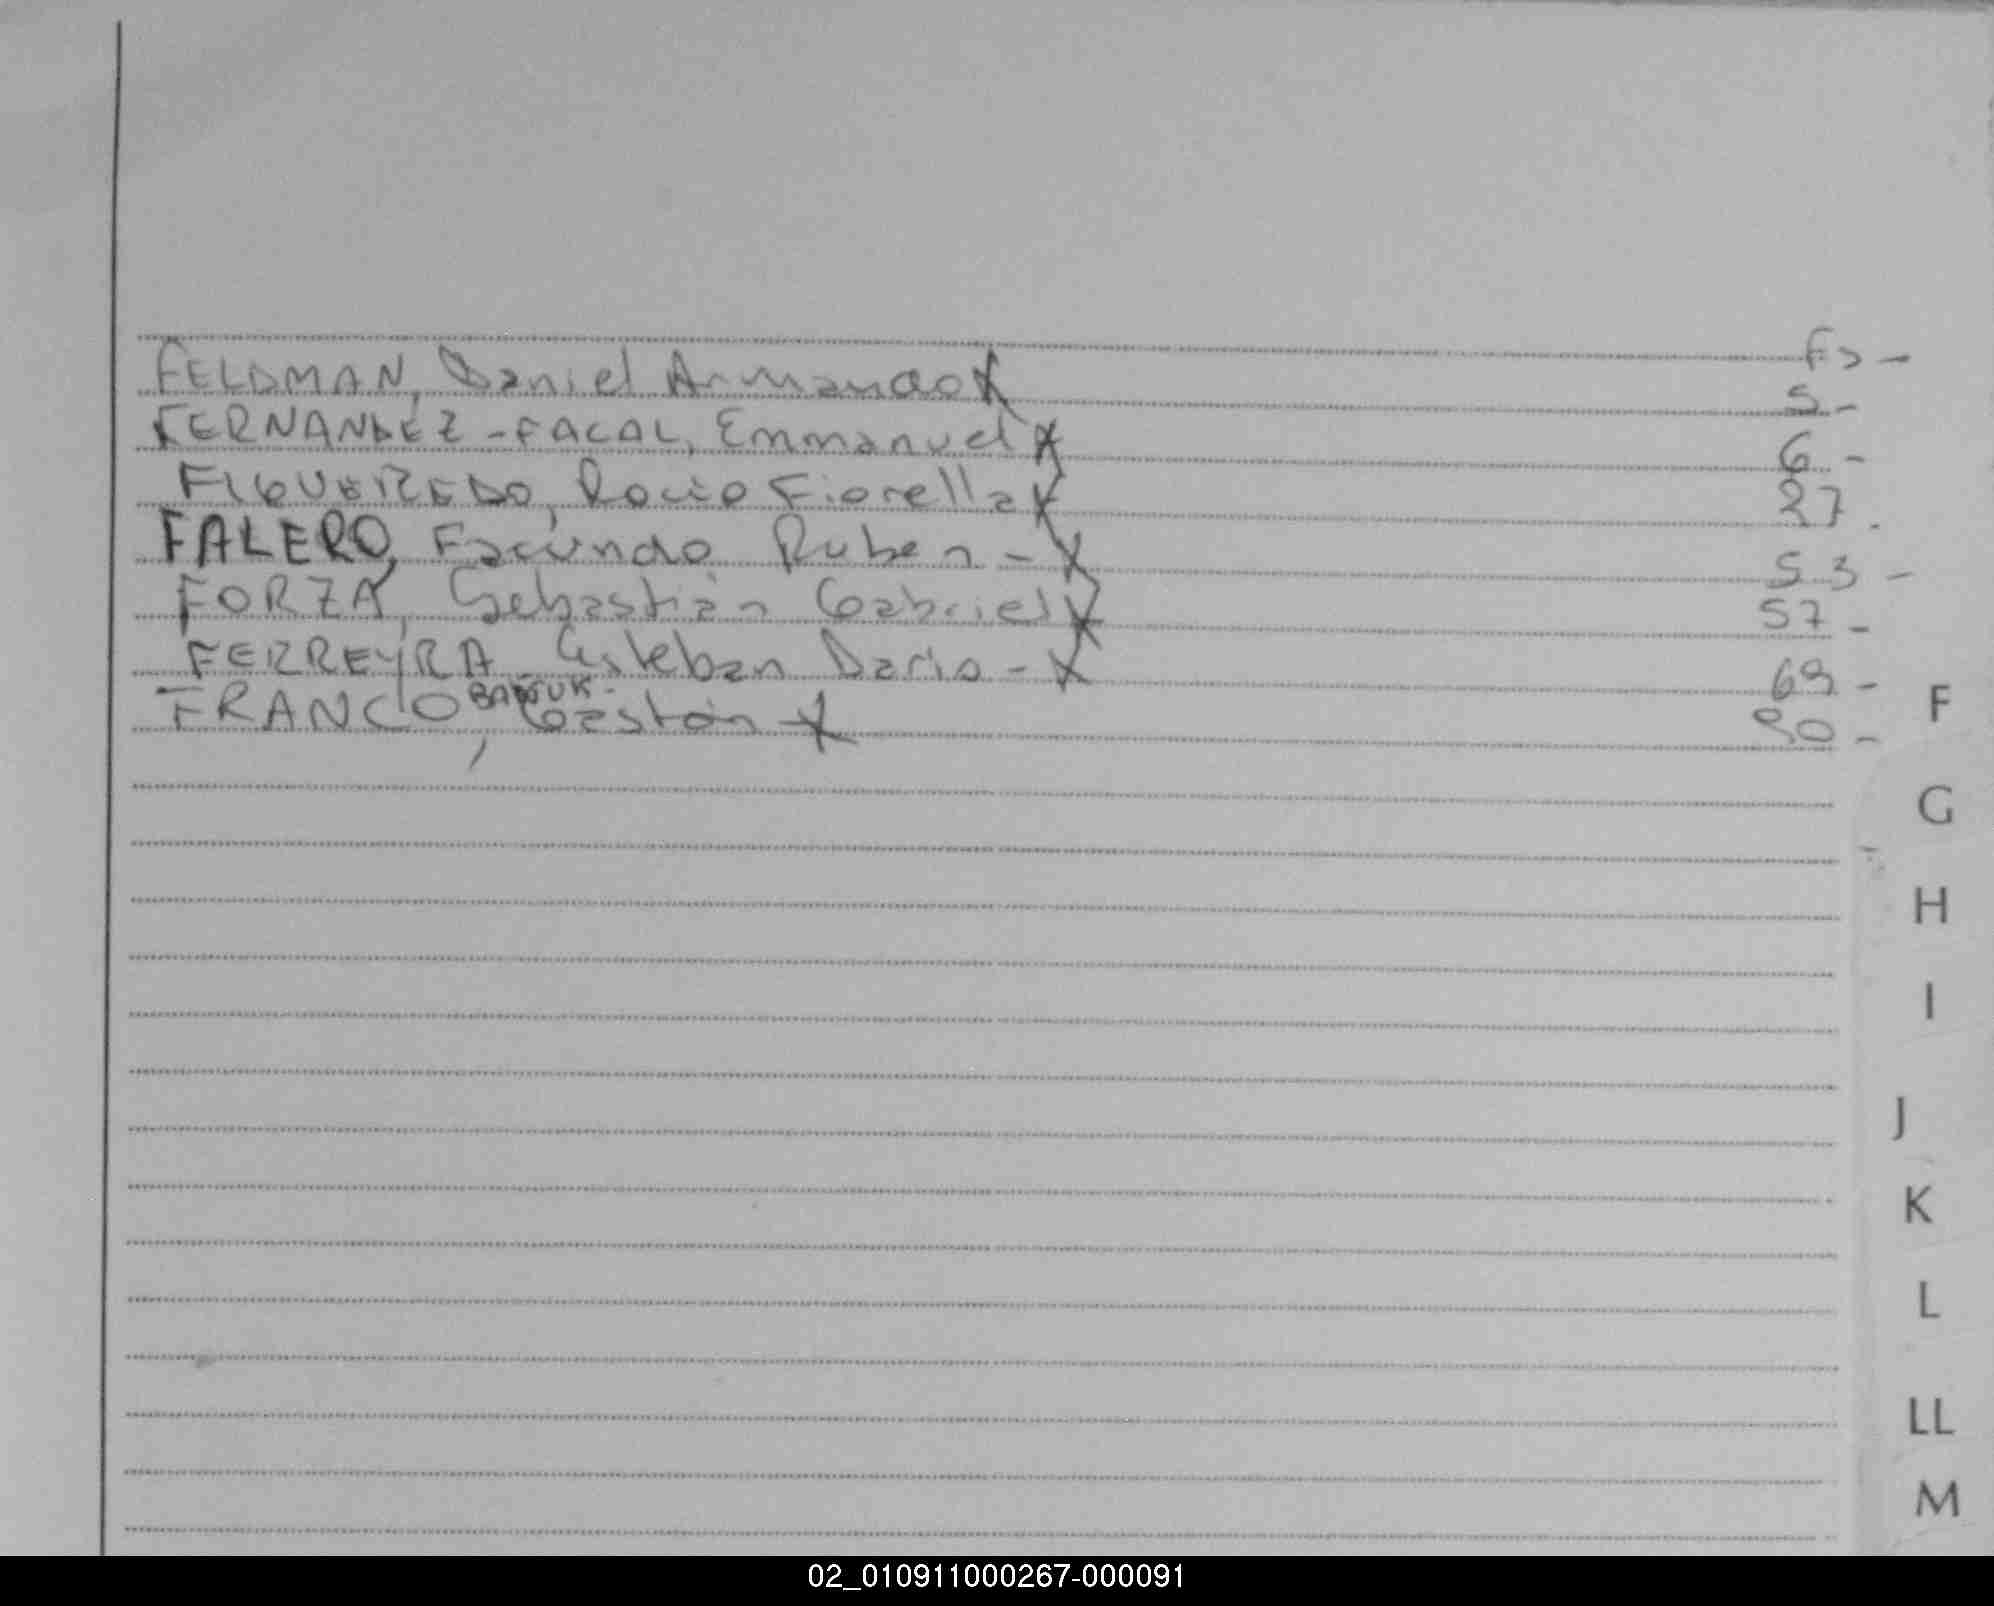 Fs -
FELDMAN, Daniel Armando X 5 -
FERNANDEZ - FACAL, Emmanuel X 6 -
FIGUEIREDO, Rocio Fiorella X 27.
FALERO, Facundo Ruben - X 53 -
FORZA, Sebastián Gabriel X 57 -
FERREYRA, Esteban Dario - X 69 -
FRANCO BARUK, Gastón X 90 -
F
G
H
I
J
K
L
LL
M
02_010911000267-000091